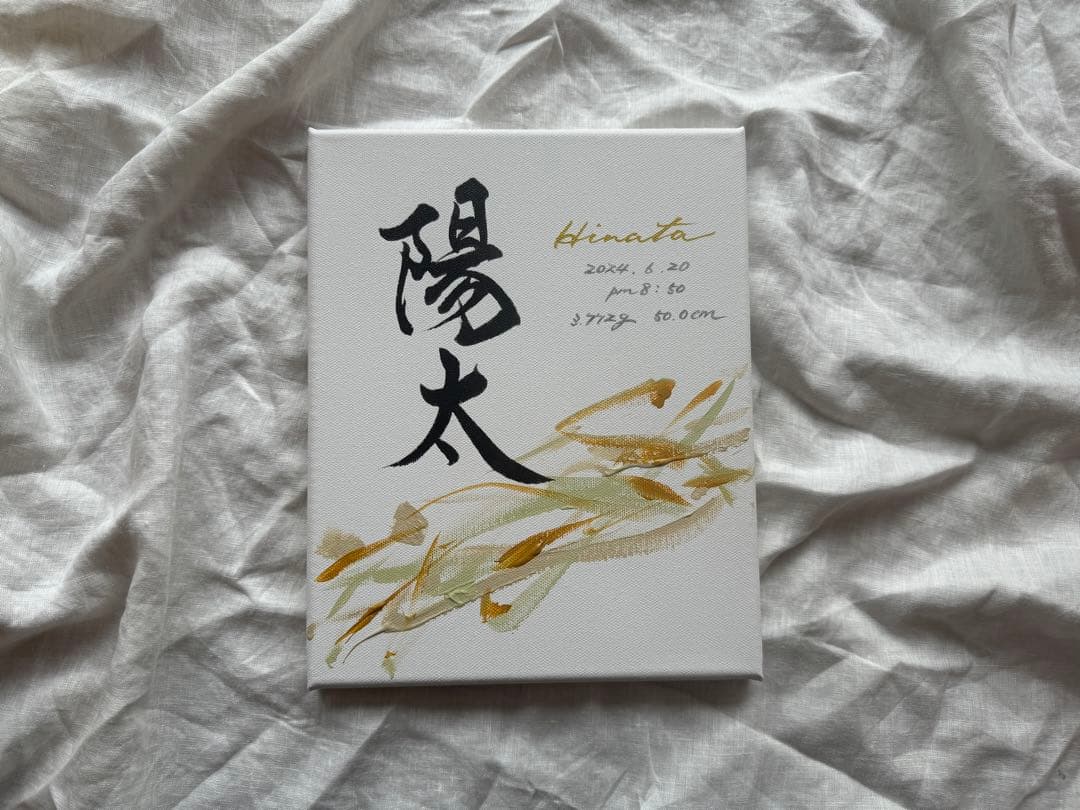 陽太
Hinata
2024.6.20
pm 8:50
3.772g 50.0cm